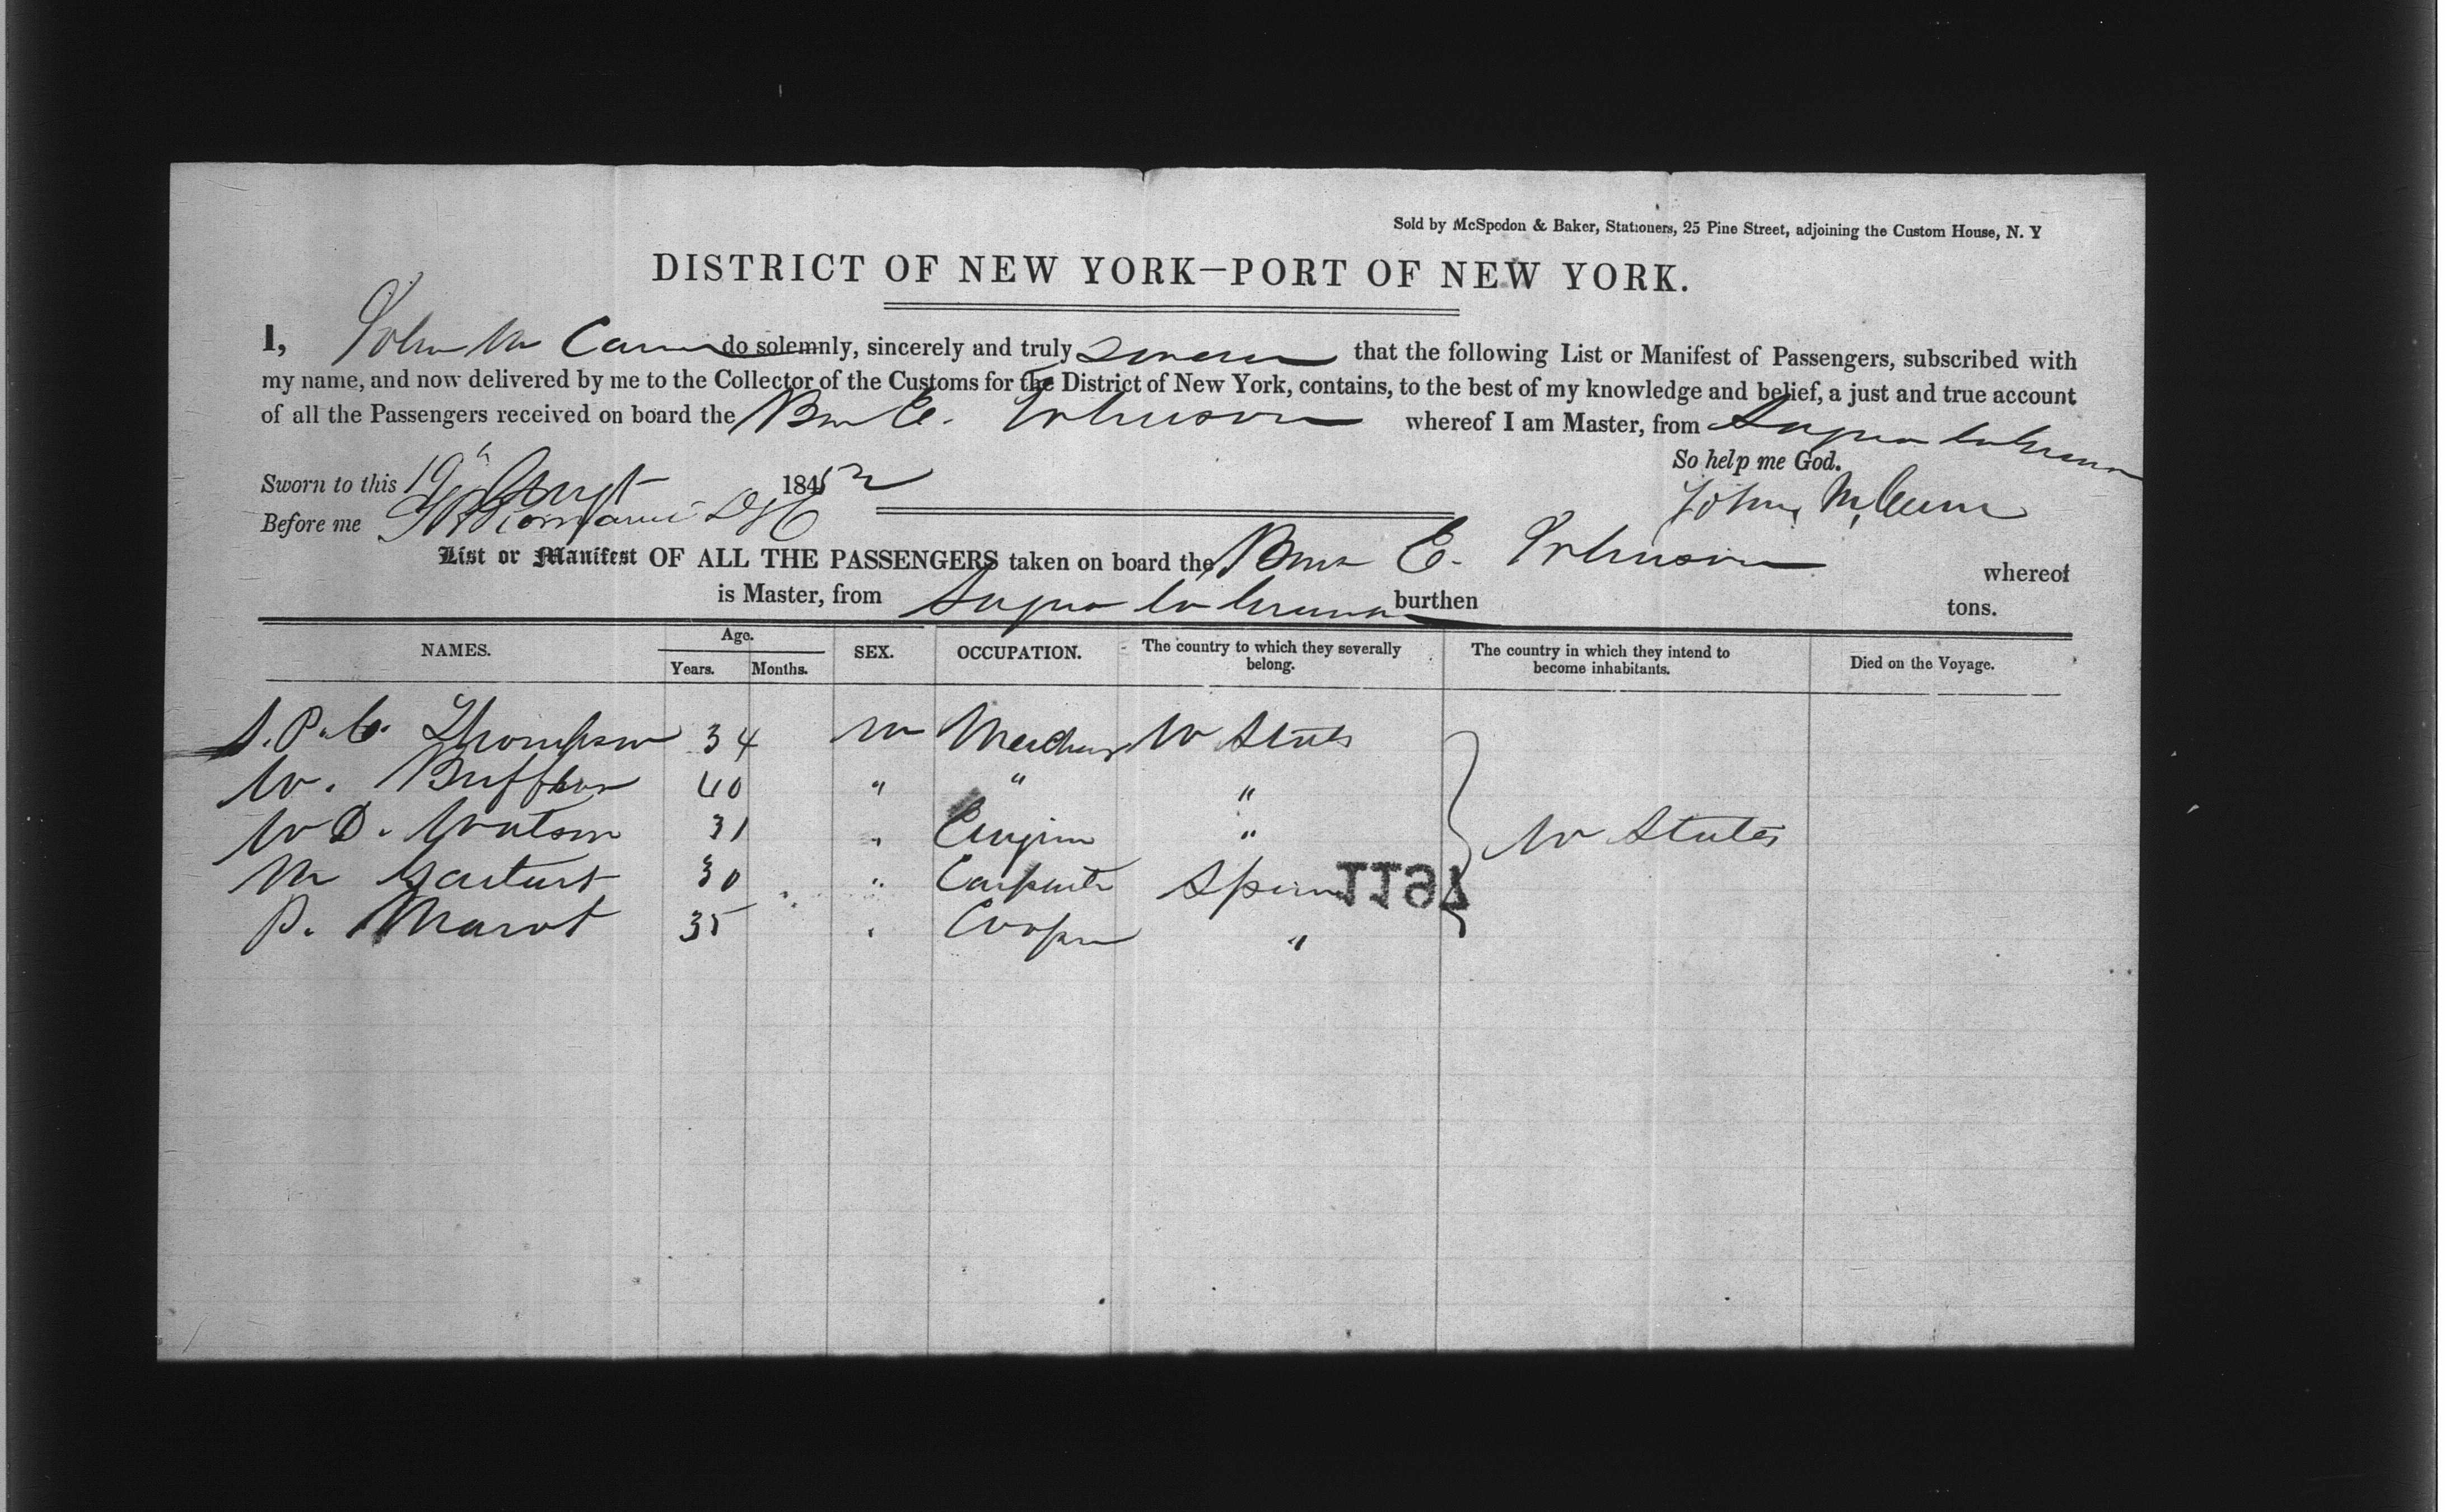 Sold by McSpedon & Baker, Stationers, 25 Pine Street, adjoining the Custom House, N. Y
DISTRICT OF NEW YORK—PORT OF NEW YORK.
I, John Mc do solemnly, sincerely and truly swear that the following List or Manifest of Passengers, subscribed with
my name, and now delivered by me to the Collector of the Customs for the District of New York, contains, to the best of my knowledge and belief, a just and true account
of all the Passengers received on board the E. Johnson whereof I am Master, from Sagua la
So help me God.
Sworn to this 19" Augst 1852
John
Before me
List or Manifest OF ALL THE PASSENGERS taken on board the E. Johnson whereof
is Master, from Sagua la burthen tons.
NAMES. Age. Years. Months. SEX. OCCUPATION. The country to which they severally belong. The country in which they intend to become inhabitants. Died on the Voyage.
Thompson 34 m U States
W. 40 " " "
W D. Watson 31 " "
M 30 " Carpenter Spain
P. Marot 35 " Cooper "
U States
1194